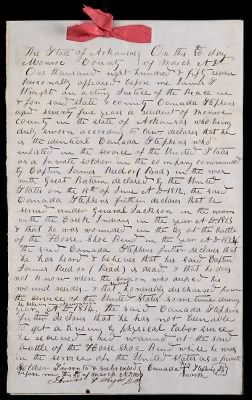 The State of Arkansas On this 30 day
Monroe County of March A.D.
One thousand eight hundred & fifty seven
personally appeared before me James T
Wright an acting Justice of the Peace in
& for said State & County Canada Stephens
aged seventy five years a resident of Monroe
County in the State of Arkansas who being
duly sworn according to law declares that he
is the identical Canada Stephens who
enlisted in the service of the United States
as a private soldier in the company commanded
by Captain James Reed or Read in the war
with Great Britain declared by the United
States on the 18th of June A.D. 1812. The said
Canada Stephens further declares that he
served under General Jackson in the war
with the Creek Indians in the year A.D. 1813
& that he was wounded in the leg at the battle
of the Horse Shoe Bend in the year A.D. 1814
The said Canada Stephens further declares that
he has heard & believes that he said Captain
James Reed or Read is dead & that he does
not know where the surgeon who dressed his
wound resides & that honorably discharged from
the service of the United States some time during
year A.D. 1814. The said Canada Stephens
further declares that he has not been able
to get a living by physical labor since
he received said wound at the said
battle of the Horse Shoe Bend while he was
in the service of the United States as a private
soldier Sworn to & subscribed Canada Stephens
before me this 30 of March A.D. 1857 his mark
James T Wright J.P.